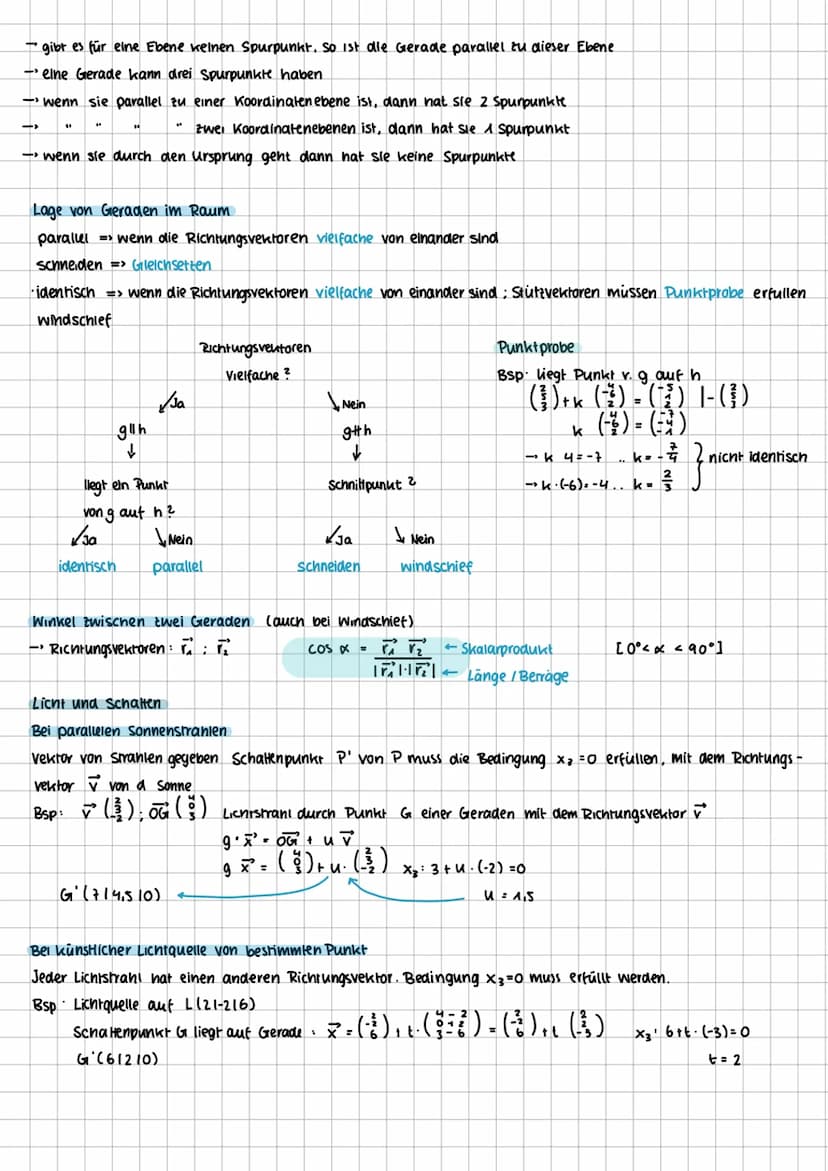 → gibt es für eine Ebene keinen Spurpunkt, so ist die Gerade parallel zu dieser Ebene
→ eine Gerade kann drei Spurpunkte haben
→ wenn sie parallel zu einer Koordinatenebene ist, dann hat sie 2 Spurpunkte
→ " " " " zwei Koordinatenebenen ist, dann hat sie 1 Spurpunkt
→ wenn sie durch den Ursprung geht dann hat sie keine Spurpunkte
Lage von Geraden im Raum
parallel => wenn die Richtungsvektoren vielfache von einander sind
schneiden => Gleichsetzen
·identisch => wenn die Richtungsvektoren vielfache von einander sind ; Stützvektoren müssen Punktprobe erfüllen
windschief
Richtungsvektoren
Vielfache ?
↙Ja ↘Nein
g∥h g∦h
↓ ↓
liegt ein Punkt
von g auf h?
Schnittpunkt ?
↙Ja ↘Nein ↙Ja ↘Nein
identisch parallel schneiden windschief
Punktprobe
Bsp: liegt Punkt v. g auf h
k
→ k 4 = -7 .. k = -7/4
→ k·(-6) = -4 .. k = 2/3
} nicht identisch
Winkel zwischen zwei Geraden (auch bei Windschief)
→ Richtungsvektoren: r₁ ; r₂ cos α = r₁ r₂ / |r₁|·|r₂| ← Skalarprodukt ← Länge / Beträge [0° < α < 90°]
Licht und Schatten
Bei parallelen Sonnenstrahlen
Vektor von Strahlen gegeben Schattenpunkt P' von P muss die Bedingung x₃ = 0 erfüllen, mit dem Richtungs-
vektor v⃗ von d Sonne
Bsp: v⃗ (2 3 -2) ; OG⃗ (4 0 3) Lichtstrahl durch Punkt G einer Geraden mit dem Richtungsvektor v⃗
g: x⃗ = OG⃗ + u v⃗
g x⃗ = (4 0 3) + u · (2 3 -2) x₃: 3 + u · (-2) = 0
G'(7|4,5|0) u = 1,5
Bei künstlicher Lichtquelle von bestimmten Punkt
Jeder Lichtstrahl hat einen anderen Richtungsvektor. Bedingung x₃=0 muss erfüllt werden.
Bsp: Lichtquelle auf L(2|-2|6)
Schattenpunkt G liegt auf Gerade : x⃗ = (2 -2 6) + t · (4-2 0+2 3-6) = (2 -2 6) + t (2 2 -3) x₃: 6+t·(-3)=0
G'(6|2|0) t = 2